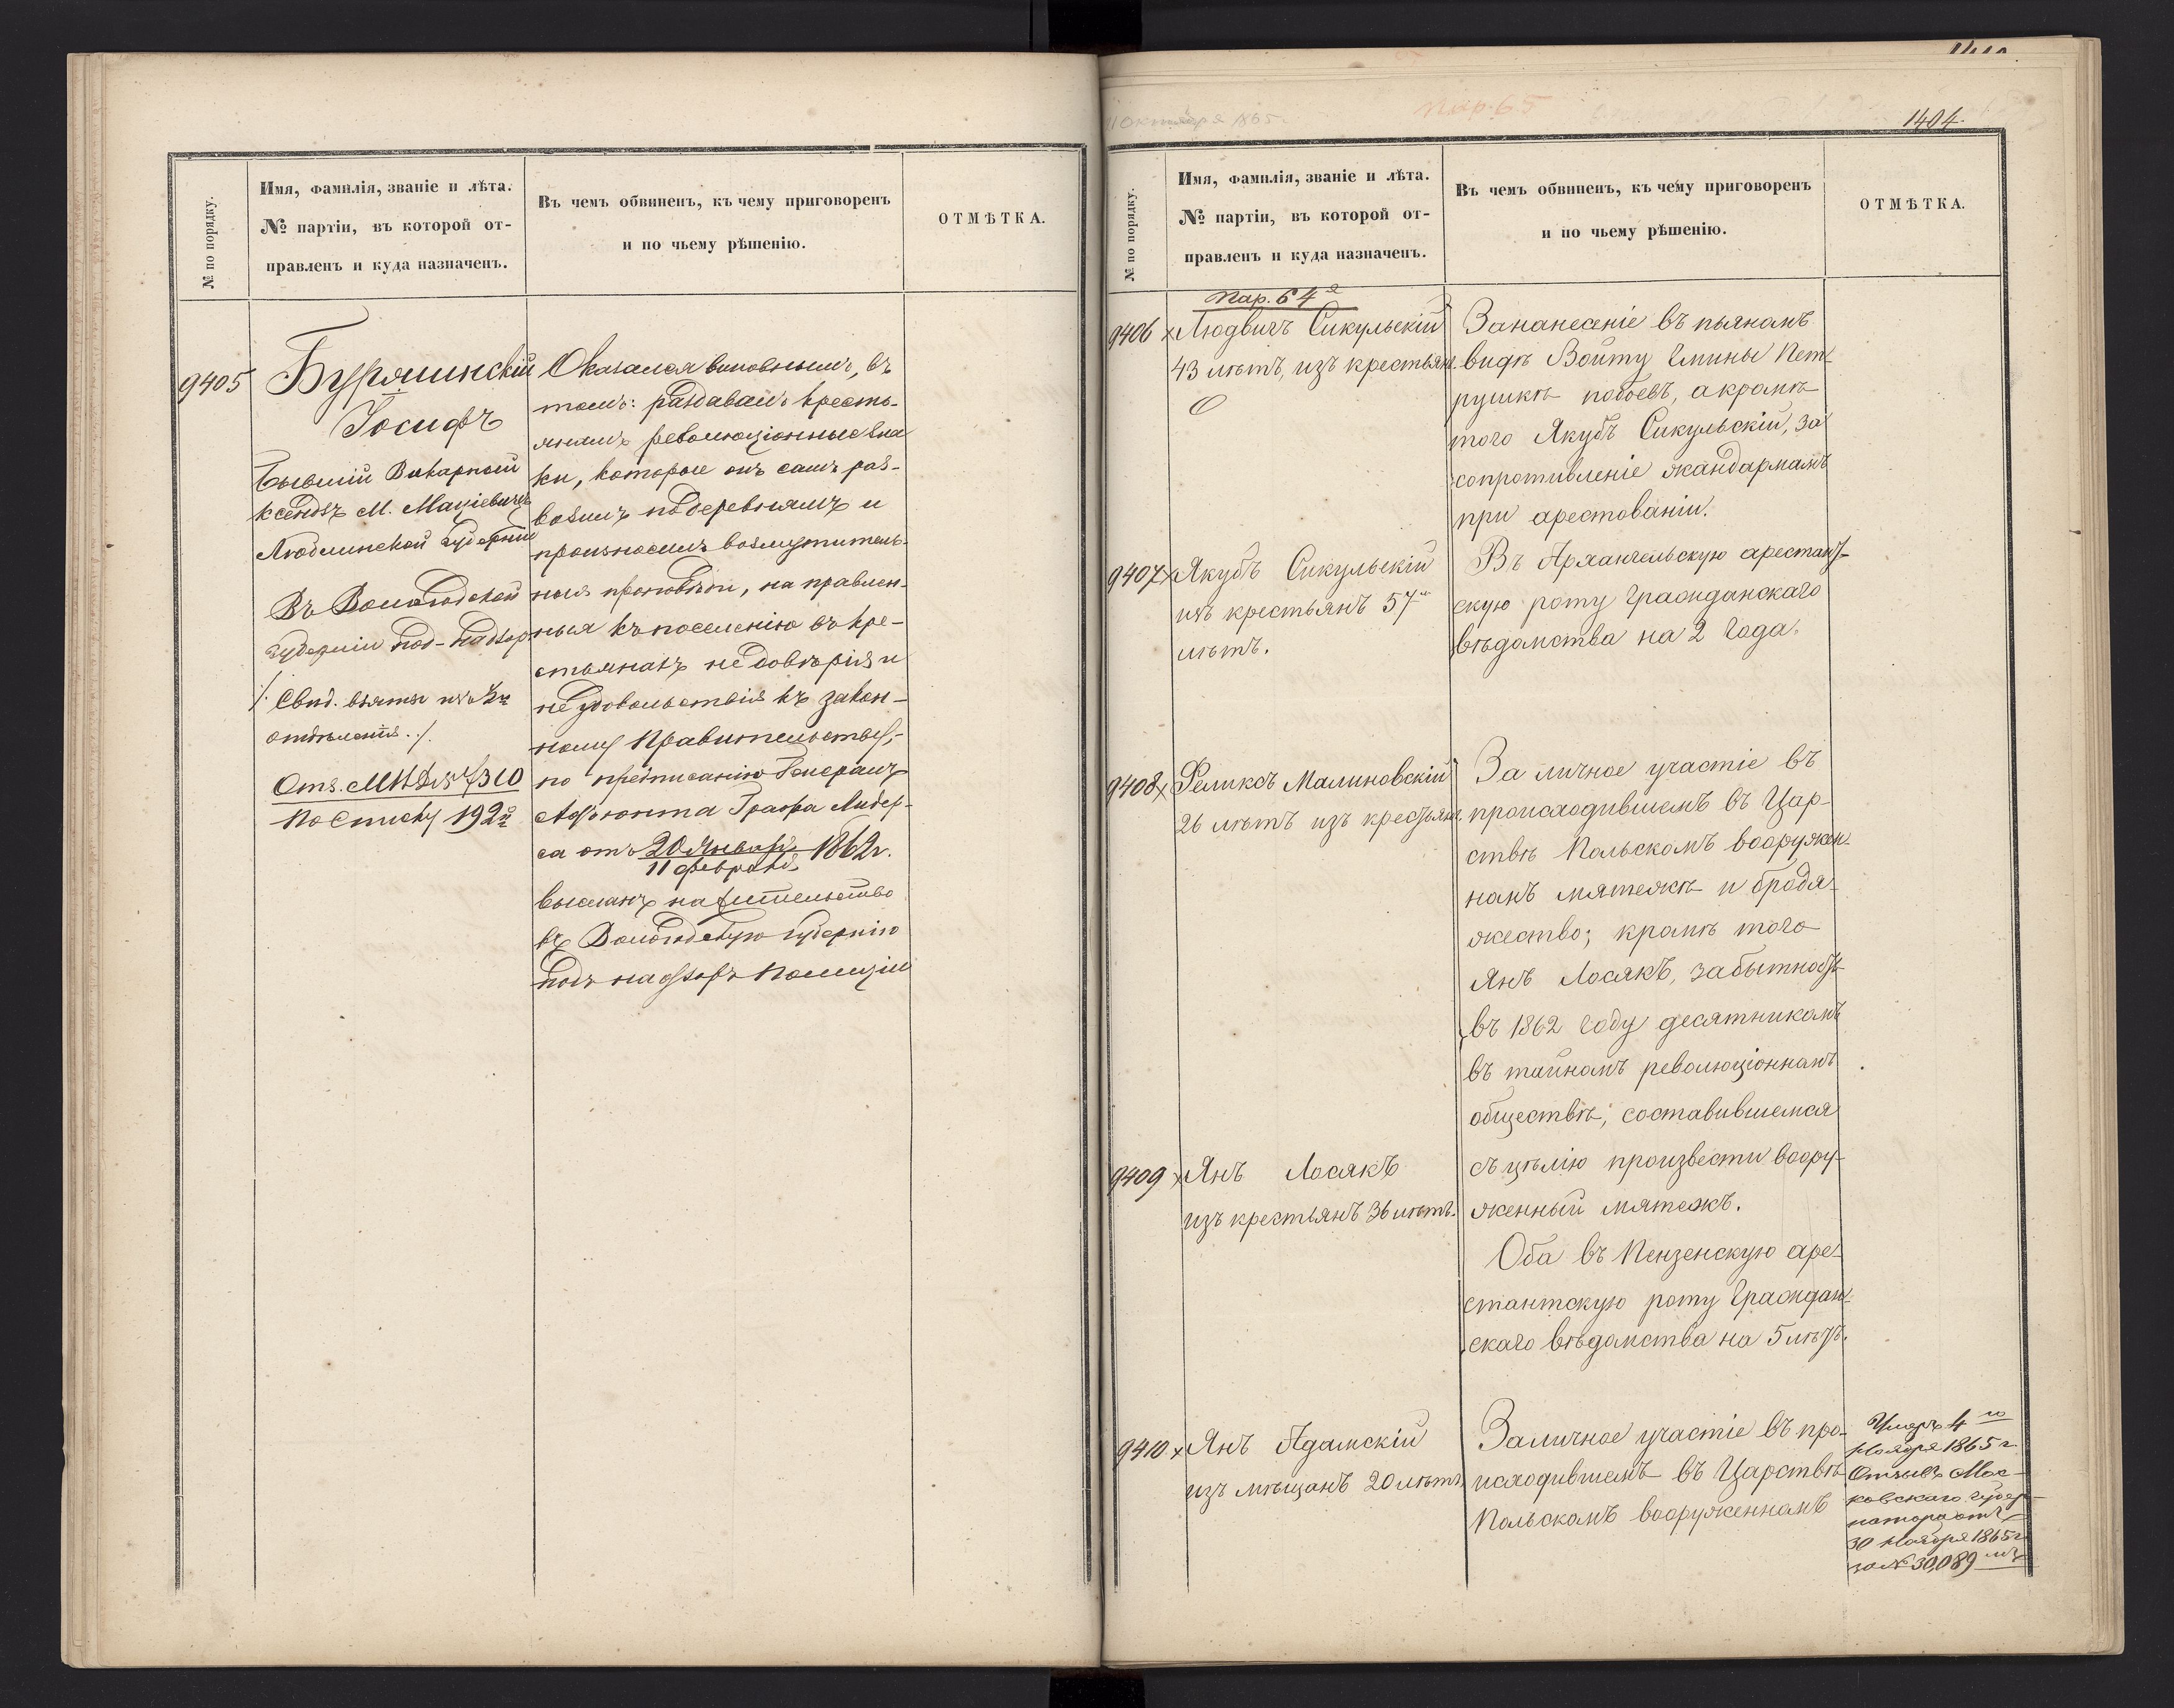 № по порядку.
Имя, фамилія, званіе и лѣта.
№ партіи, въ которой от-
правленъ и куда назначенъ.
Въ чемъ обвиненъ, къ чему приговоренъ
и по чьему рѣшенію.
ОТМѢТКА.
9405
Іосифъ
Бывшій Викарный
ксендзъ М. Маціевичъ
Люблинской губерніи
Въ Вологодской
губерніи под-надзор
отдѣленія ./.
По списку 192й
Оказался виновнымъ, въ
томъ: раздавалъ кресть-
янамъ революціонные зна
ки, которые онъ самъ раз-
возилъ по деревнямъ и
произносилъ возмутитель-
ныя проповѣди, на правлен-
ныя къ поселенію въ кре-
стьянахъ не довѣрія и
не удовольствія къ закон-
ному Правительству,-
по предписанію Генералъ
Адъютанта Графа Лидер-
са отъ 20 Января 1862г.
11 февраля
высланъ на жительство
въ Вологодскую губернію
подъ надзоръ Полиціи
11 октября 1865 г.
пар. 65
1404.
№ по порядку.
Имя, фамилія, званіе и лѣта.
№ партіи, въ которой от-
правленъ и куда назначенъ.
Въ чемъ обвиненъ, къ чему приговоренъ
и по чьему рѣшенію.
ОТМѢТКА.
пар. 64я
9406 х Людвигъ Сикульскій
43 лѣтъ, изъ крестьян.
За нанесеніе въ пьяномъ
видѣ Войту Гмины Пет-
рушкѣ побоевъ, а кромѣ
того Якубъ Сикульскій, за
сопротивленіе жандармамъ
при арестованіи.
9407 х Якубъ Сикульскій
изъ крестьянъ 57и
лѣтъ.
Въ Архангельскую арестант-
скую роту гражданскаго
вѣдомства на 2 года.
9408 х Феликсъ Малиновскій
26 лѣтъ изъ крестьян.
За личное участіе въ
происходившемъ въ Цар-
ствѣ Польскомъ вооружен-
номъ мятежѣ и бродя-
жество; кромѣ того
Янъ Лосякъ, за бытность
въ 1862 году десятникомъ
въ тайномъ революціонномъ
обществѣ, составившемся
съ цѣлію произвести воору-
женный мятежъ.
9409 х Янъ Лосякъ
изъ крестьянъ 36 лѣтъ.
Оба въ Пензенскую аре-
стантскую роту Граждан-
скаго вѣдомства на 5 лѣтъ.
9410 х Янъ Адамскій
изъ мѣщанъ 20 лѣтъ
За личное участіе въ про-
исходившемъ въ Царствѣ
Польскомъ вооруженномъ
Умеръ 4го
Ноября 1865 г.
Отзывъ Мос-
ковскаго Губер-
натора отъ
30 Ноября 1865 г
за № 30,089мъ